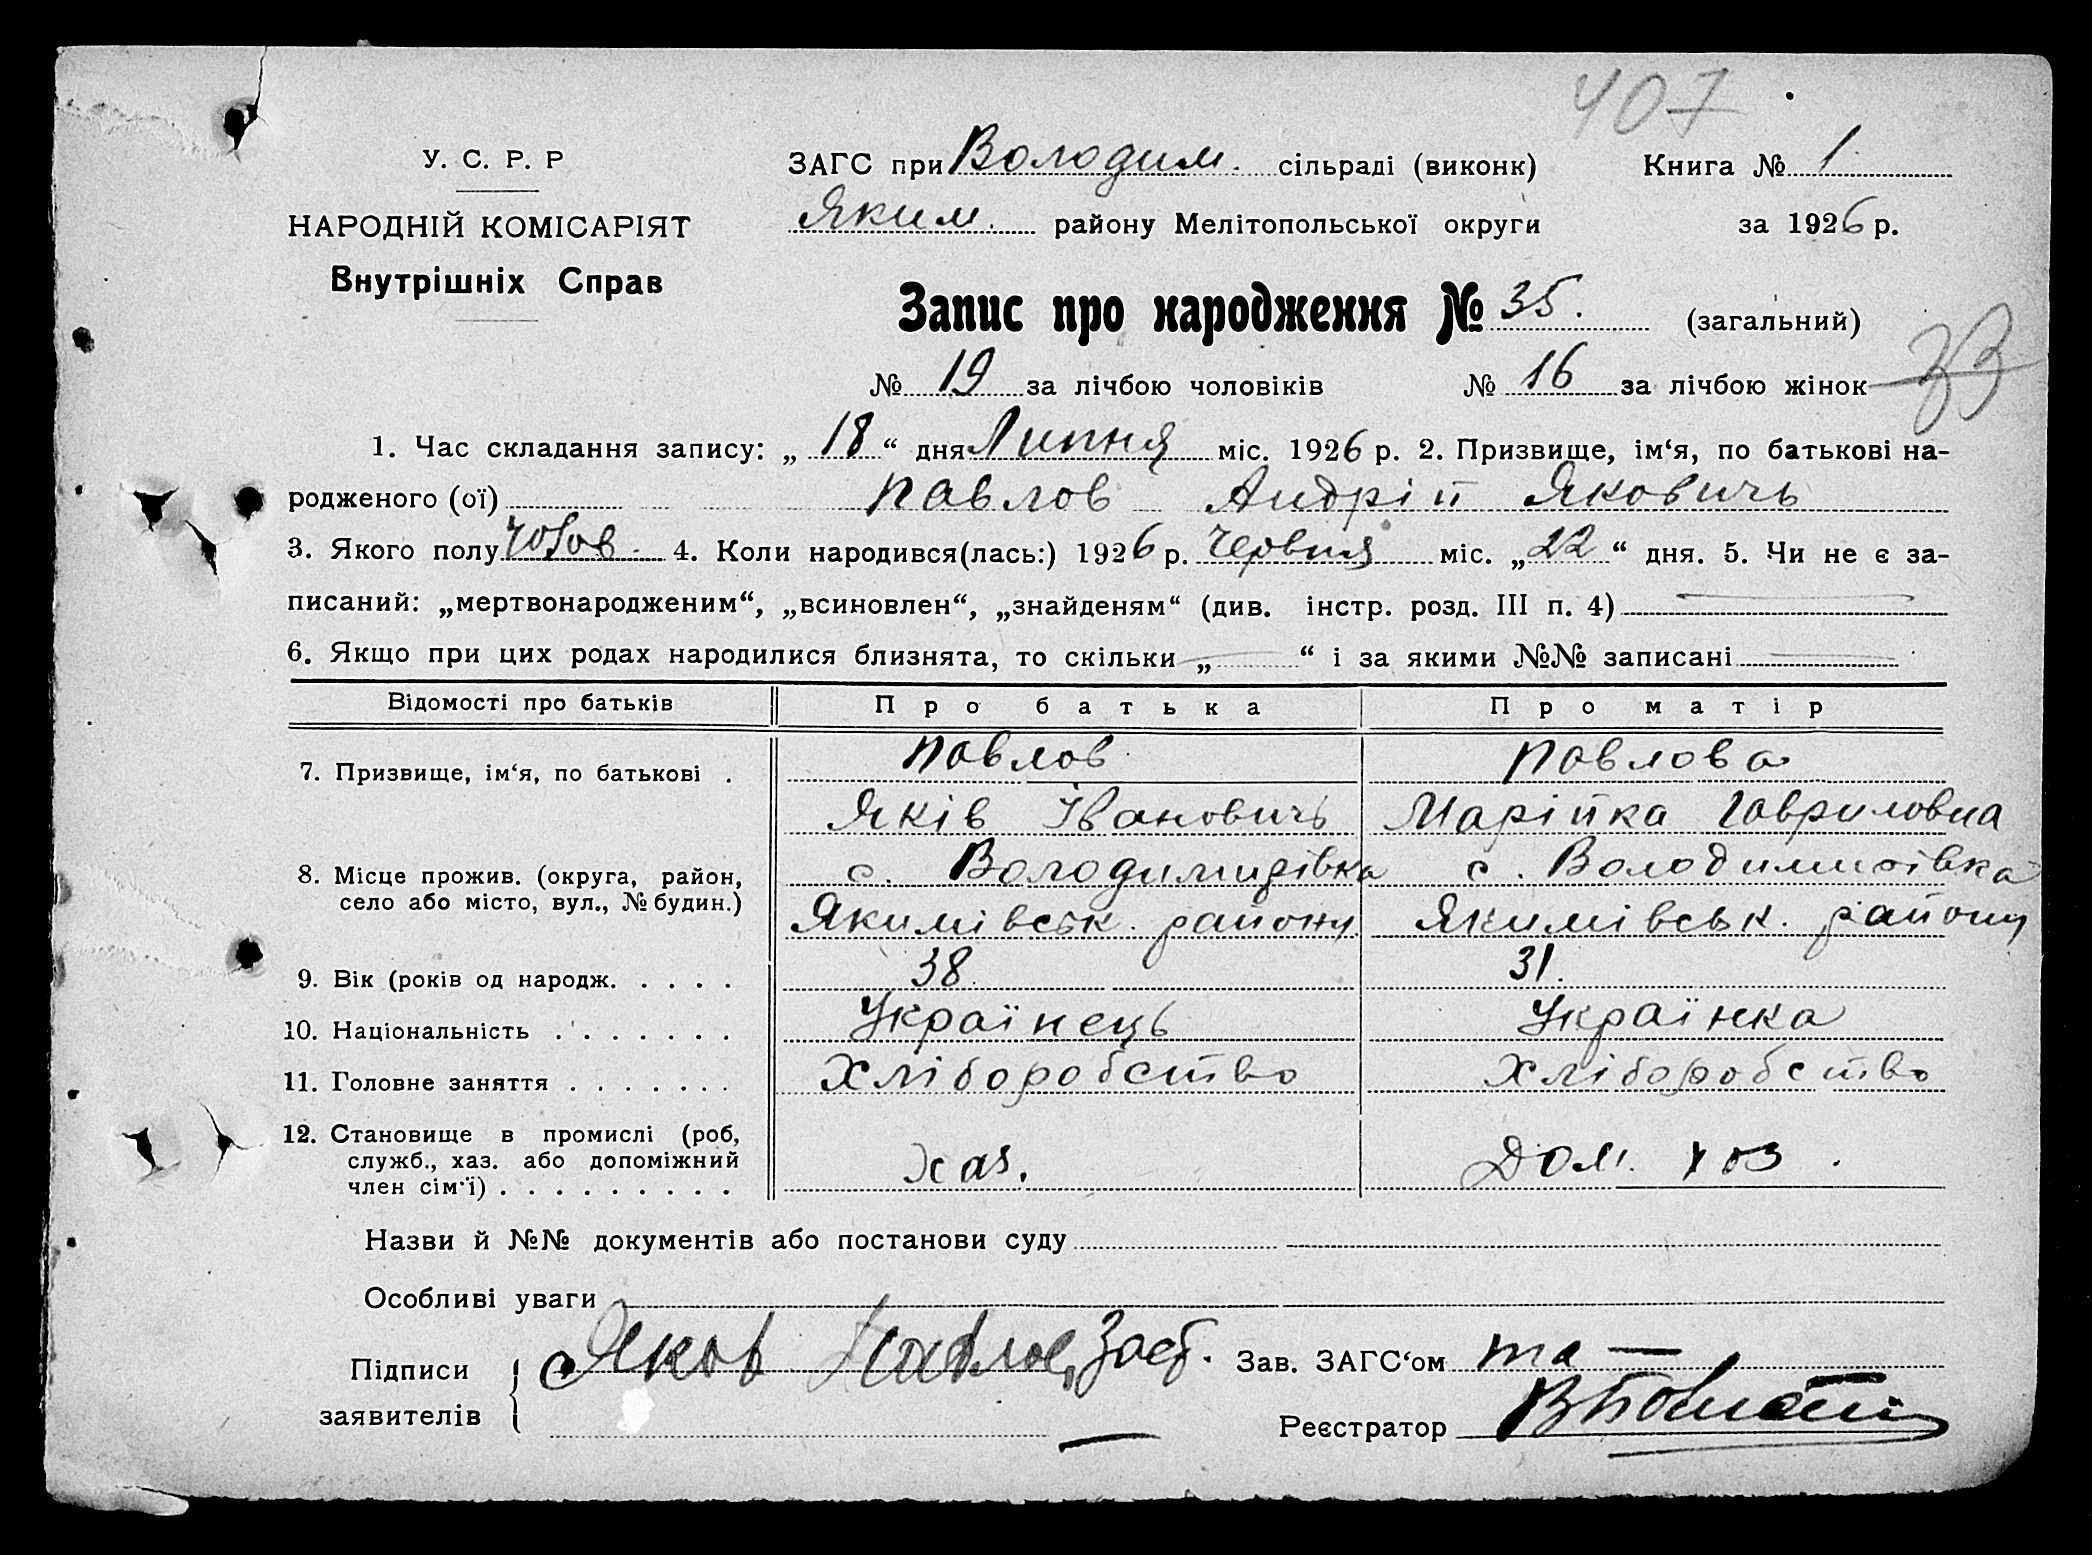 407
У. С. Р. Р
ЗАГС при Володим. сільраді (виконк) Книга № 1
Яким. району Мелітопольської округи за 1926 р.
НАРОДНІЙ КОМІСАРІЯТ
Внутрішніх Справ
Запис про народження № 35. (загальний)
№ 19 за лічбою чоловіків № 16 за лічбою жінок
33
1. Час складання запису: „ 18 “ дня Липня міс. 1926 р. 2. Призвище, ім‘я, по батькові на-
родженого (ої) Павлов Андрій Яковичь
3. Якого полу чолов. 4. Коли народився(лась:) 1926 р. Червня міс. „ 22 “ дня. 5. Чи не є за-
писаний: „мертвонародженим“, „всиновлен“, „знайденям“ (див. інстр. розд. III п. 4)
6. Якщо при цих родах народилися близнята, то скільки „ “ і за якими №№ записані
Відомості про батьків Про батька Про матір
Павлов Павлова
7. Призвище, ім‘я, по батькові .
Яків Івановичь Марійка Гавриловна
8. Місце прожив. (округа, район, с. Володимирівка с. Володимирівка
село або місто, вул., № будин.) Якимівськ. району Якимівськ. району
9. Вік (років од народж. . . . . 38. 31.
10. Національність . . . . . . . Українець Українка
11. Головне заняття . . . . . . . Хліборобство Хліборобство
12. Становище в промислі (роб,
служб., хаз. або допоміжний хаз. Дом. хоз.
член сім‘ї) . . . . . . . . .
Назви й №№ документів або постанови суду
Особливі уваги
Підписи Яков Павлов Заст. Зав. ЗАГС‘ом та —
заявителів Реєстратор